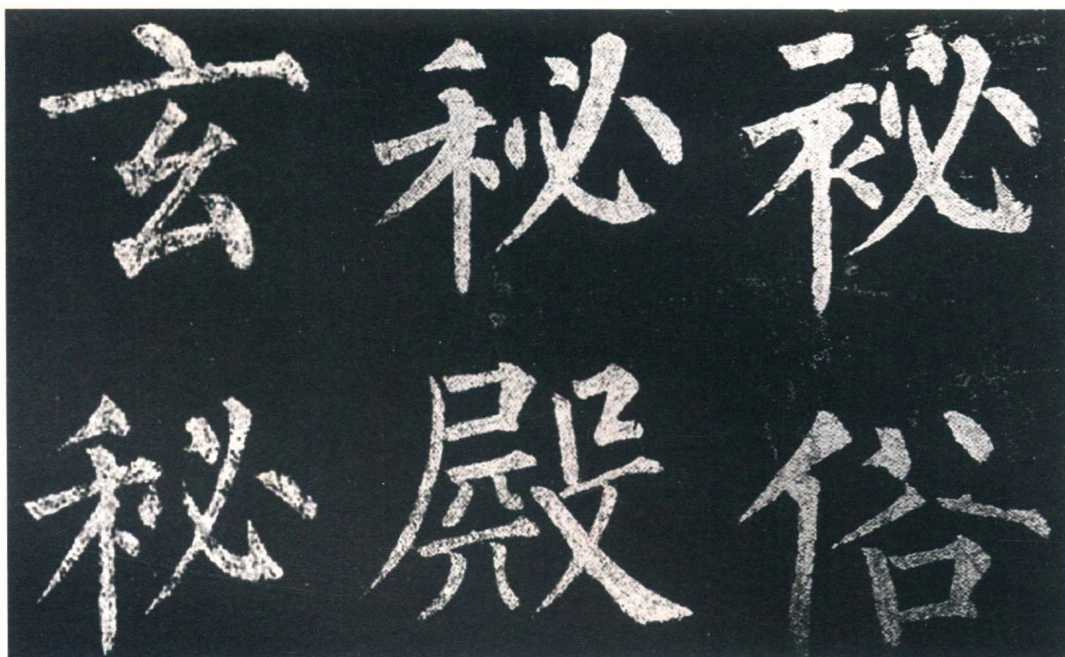 祕俗
秘殿
玄秘